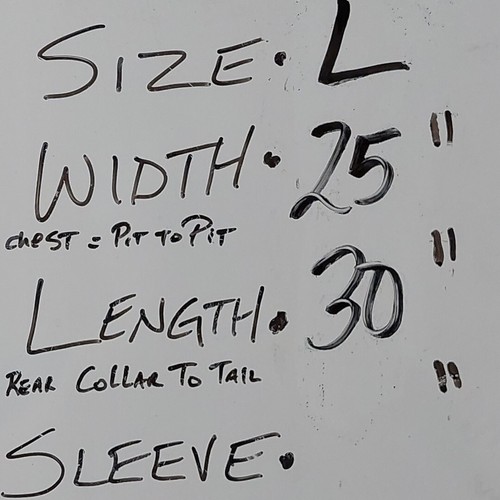 SIZE. L
WIDTH. 25"
CHEST = PIT TO PIT
LENGTH. 30"
REAR COLLAR TO TAIL
"
SLEEVE.